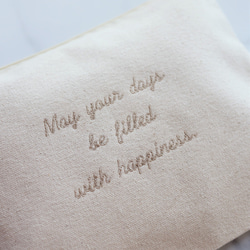 May your days
be filled
with happiness.